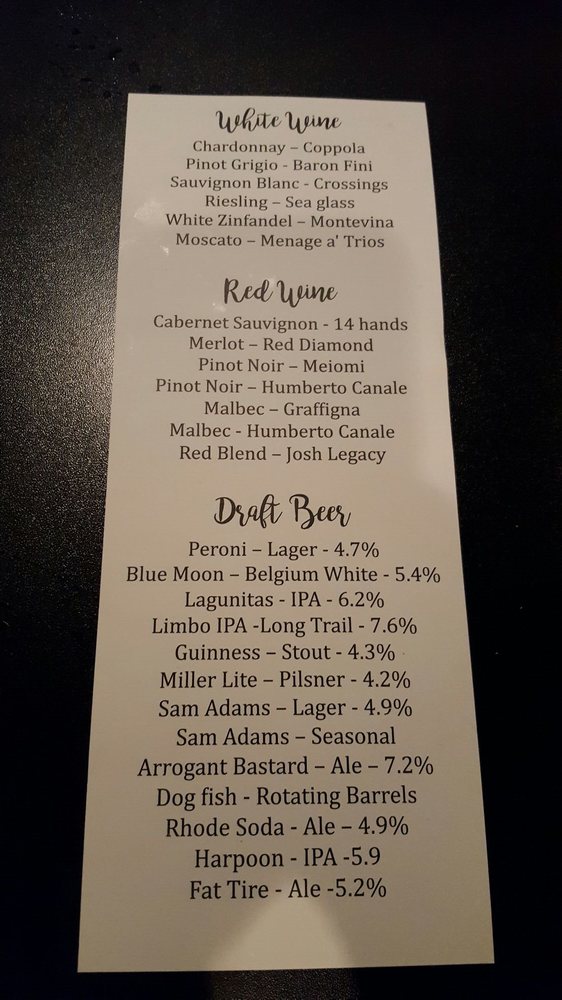 White Wine
Chardonnay – Coppola
Pinot Grigio - Baron Fini
Sauvignon Blanc - Crossings
Riesling – Sea glass
White Zinfandel – Montevina
Moscato – Menage a' Trios
Red Wine
Cabernet Sauvignon - 14 hands
Merlot – Red Diamond
Pinot Noir – Meiomi
Pinot Noir – Humberto Canale
Malbec – Graffigna
Malbec - Humberto Canale
Red Blend – Josh Legacy
Draft Beer
Peroni – Lager - 4.7%
Blue Moon – Belgium White - 5.4%
Lagunitas - IPA - 6.2%
Limbo IPA -Long Trail - 7.6%
Guinness – Stout - 4.3%
Miller Lite – Pilsner - 4.2%
Sam Adams – Lager - 4.9%
Sam Adams – Seasonal
Arrogant Bastard – Ale – 7.2%
Dog fish - Rotating Barrels
Rhode Soda - Ale – 4.9%
Harpoon - IPA -5.9
Fat Tire - Ale -5.2%